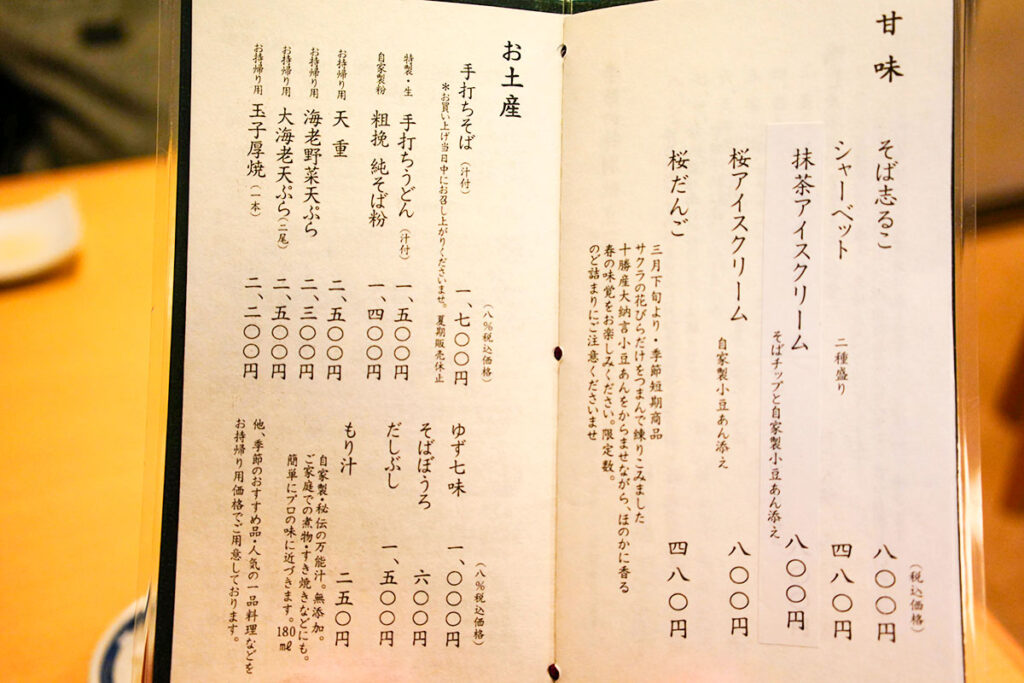 甘味
(税込価格)
そば志るこ 八〇〇円
シャーベット 二種盛り 四八〇円
抹茶アイスクリーム そばチップと自家製小豆あん添え 八〇〇円
桜アイスクリーム 自家製小豆あん添え 八〇〇円
桜だんご 四八〇円
三月下旬より・季節短期商品
サクラの花びらだけをつまんで練りこみました
十勝産大納言小豆あんをからませながら、ほのかに香る
春の味覚をお楽しみください。限定数。
のど詰まりにご注意くださいませ
お土産
(八%税込価格)
手打ちそば(汁付) 一、七〇〇円
*お買い上げ当日中にお召し上がりくださいませ。夏期販売休止
特製・生 手打ちうどん(汁付) 一、五〇〇円
自家製粉 粗挽 純そば粉 一、四〇〇円
お持帰り用 天重 二、五〇〇円
お持帰り用 海老野菜天ぷら 二、三〇〇円
お持帰り用 大海老天ぷら(二尾) 二、五〇〇円
お持帰り用 玉子厚焼(一本) 二、二〇〇円
(八%税込価格)
ゆず七味 一、〇〇〇円
そばぼうろ 六〇〇円
だしぶし 一、五〇〇円
もり汁 二五〇円
自家製・秘伝の万能汁。無添加。
ご家庭での煮物・すき焼きなどにも。
簡単にプロの味に近づきます。180㎖
他、季節のおすすめ品・人気の一品料理などを
お持帰り用価格でご用意しております。